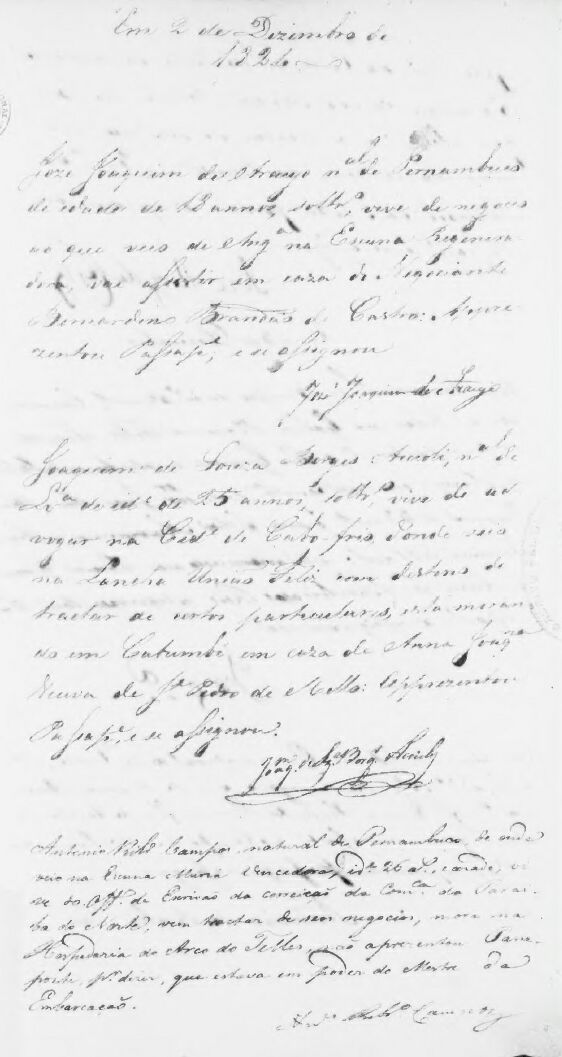 Em 2 de Dezembro de
1824
Joze Joaquim de Araujo n.al de Pernambuco
de idade de 18 annos, soltr.o, vive de negocio
ao que veio de Ang.a na Escuna Regenera-
dora, vae assistir em caza do Negociante
Bernardino Brandão de Castro: Apre-
zentou Passap.e, e se assignou
Joze Joaquim de Araujo
Joaquim de Souza Borges Accioli, n.al de
Lx.a de id.e de 25 annos, soltr.o, vive de ad-
vogar na Cid.e de Cabo-frio, donde veio
na Lancha União Feliz com destino de
tractar de certos particulares, está moran-
do em Catumbi em caza de Anna Joaq.na
Viuva de Pedro de Mello: Apprezentou
Passap.e, e se assignou.
Joaq.m de Sz.a Borg.s Accioli
Antonio Rib.ro Campos, natural de Pernambuco, de onde
veio na Escuna Maria Vencedora, id.e 26 a., cazado, vi-
ve do Off.o de Escrivão da correição da Com.ca da Parai-
ba do Norte, vem tractar de seos negocios, mora na
Hospedaria do Arco do Telles, não aprezentou Passa-
porte, p.r dizer, que estava em poder do Mestre da
Embarcação.
Ant.o Rib.ro Campos